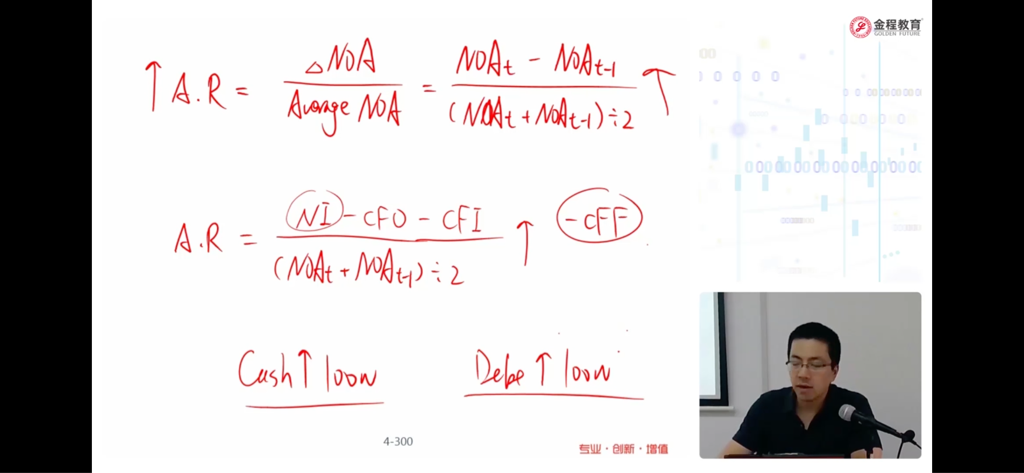 金程教育
GOLDEN FUTURE
↑ A.R = △NOA / Average NOA = NOAt - NOAt-1 / (NOAt + NOAt-1) ÷ 2 ↑
A.R = NI - CFO - CFI / (NOAt + NOAt-1) ÷ 2 ↑ -CFF
Cash ↑ 100w Debt ↑ 100w
4-300
专业·创新·增值